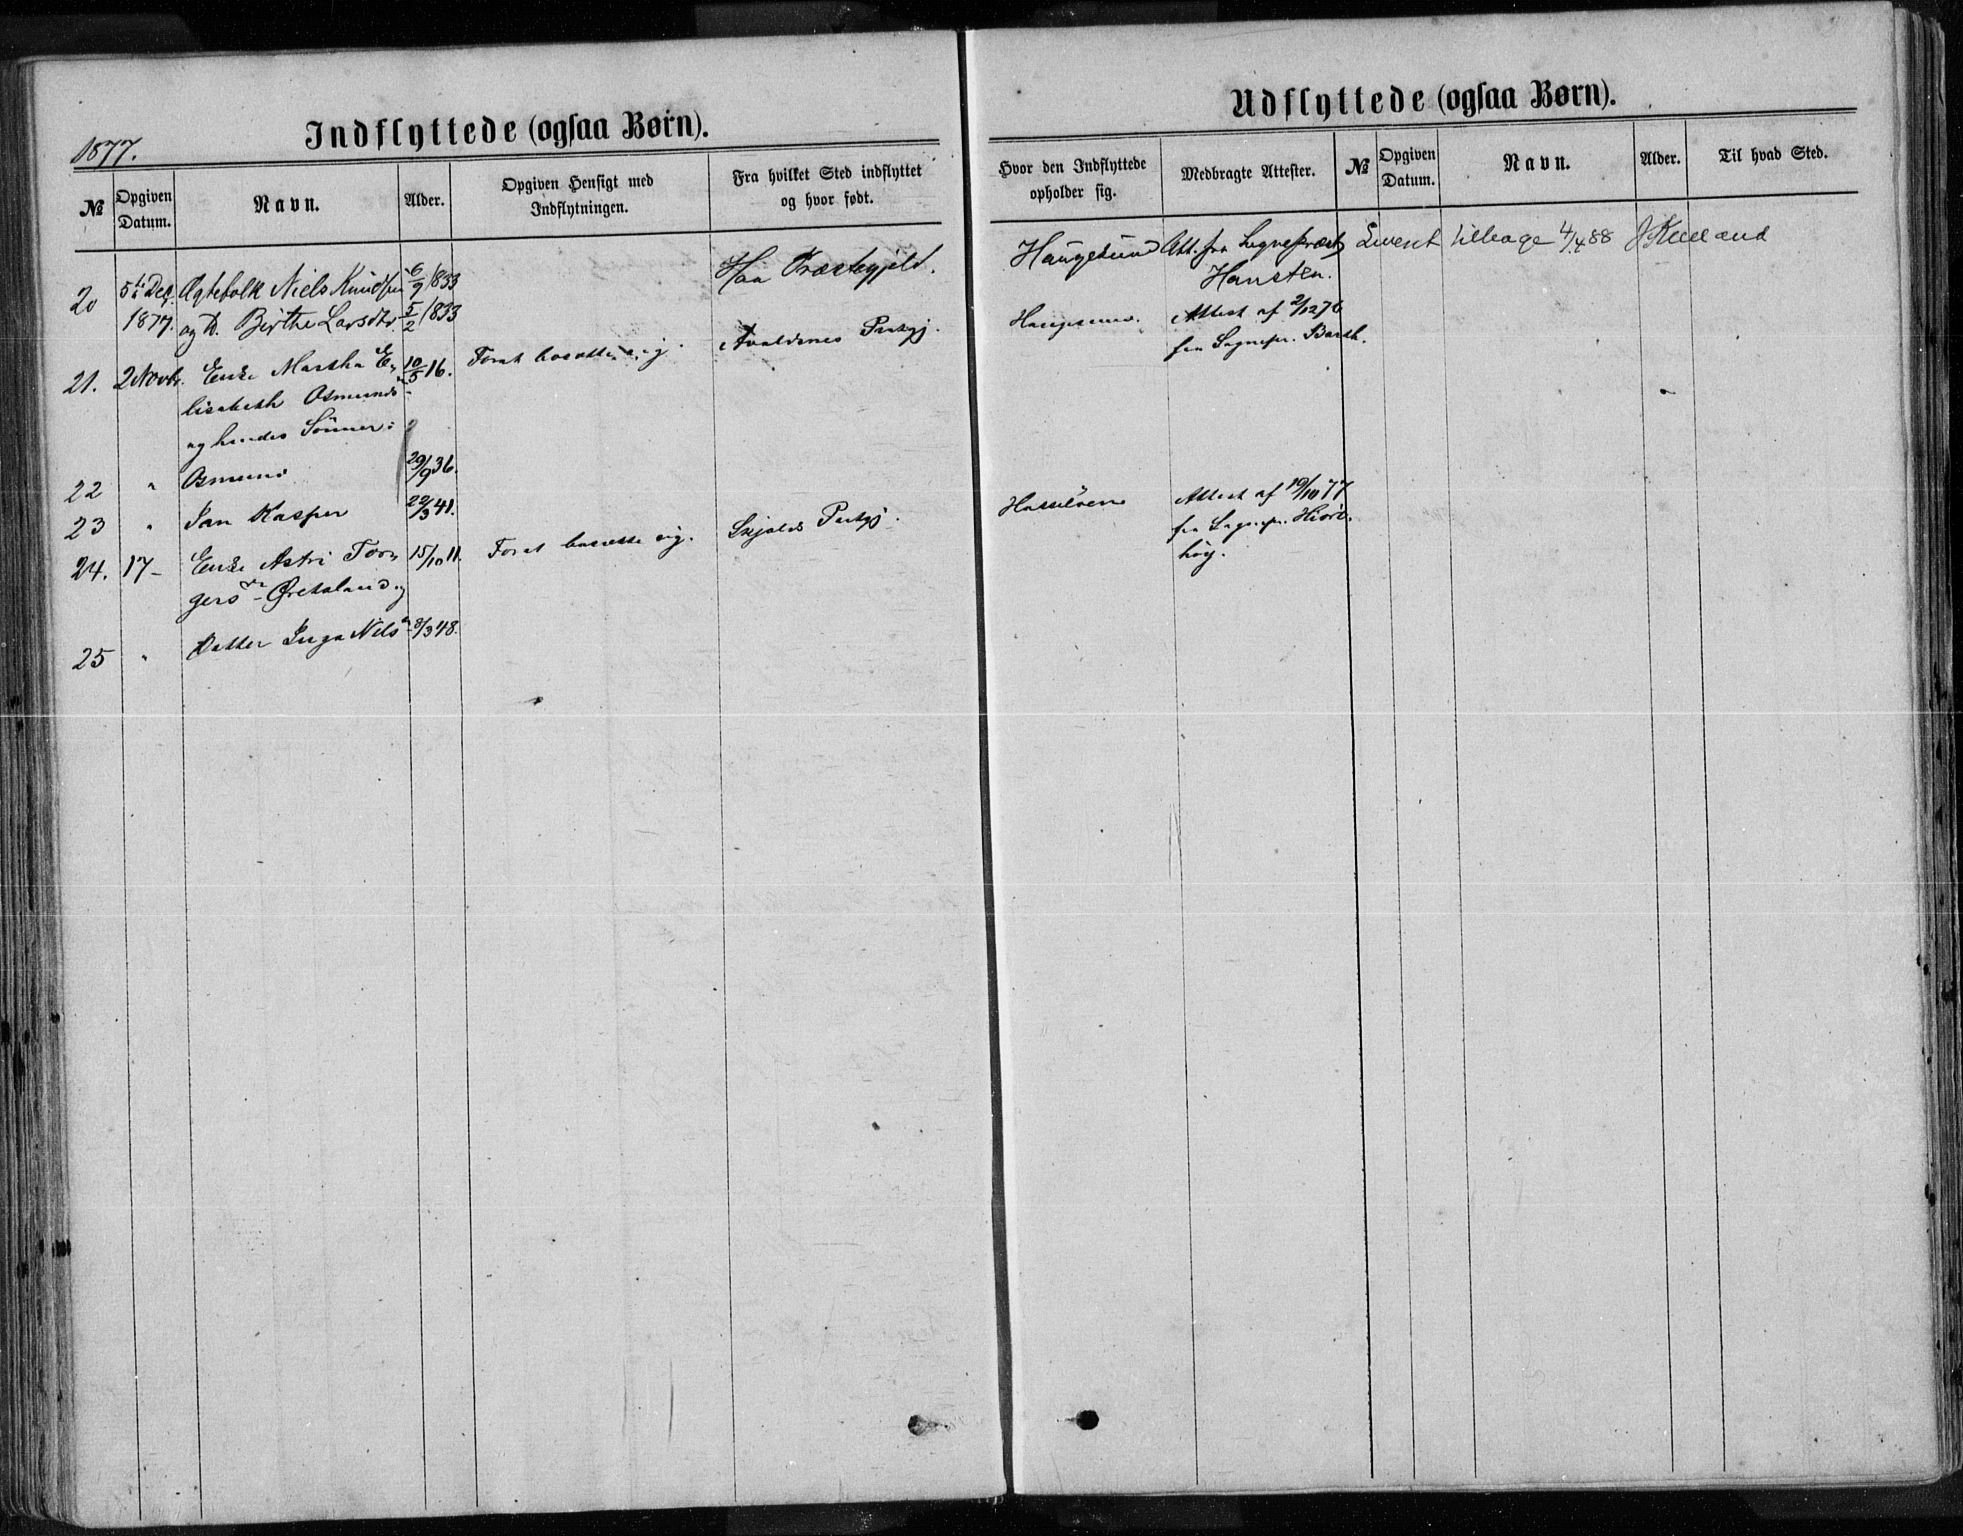 1877.
Indflyttede (ogsaa Børn).
№
Opgiven Datum.
Navn.
Alder.
Opgiven Hensigt med Indflytningen.
Fra hvilket Sted indflyttet og hvor født.
20 5te Dec. Ægtefolk Niels Knudsen 6/9 1833 Haa Præstegjeld.
1877. og K. Birthe Larsdtr. 5/2 1833
21. 2 Novbr. Enke Martha E- 10/5 16. For at bosætte sig. Avaldsnes Prstgj.
lisabeth Osmunds-
og hendes Sönner:
22 " Osmund 29/9 36.
23 " Jan Kasper 22/3 41.
24. 17- Enke Astri Tor- 15/10 11. For at bosætte sig. Skjolds Prstgj.
gers - Øretsland og
25 " Datter Inga Nils 8/3 48.
Udflyttede (ogsaa Børn).
Hvor den Indflyttede opholder sig.
Medbragte Attester.
№
Opgiven Datum.
Navn.
Alder.
Til hvad Sted.
Haugesund Att. fra Sognepræst Levert tilbage 4/4 88 J Kielland
Hansten.
Haugesund. Attest af 2/12 76
fra Sognepr. Barth.
Hasseløen Attest af 19/10 77
fra Sognepr. Hiort-
höy.